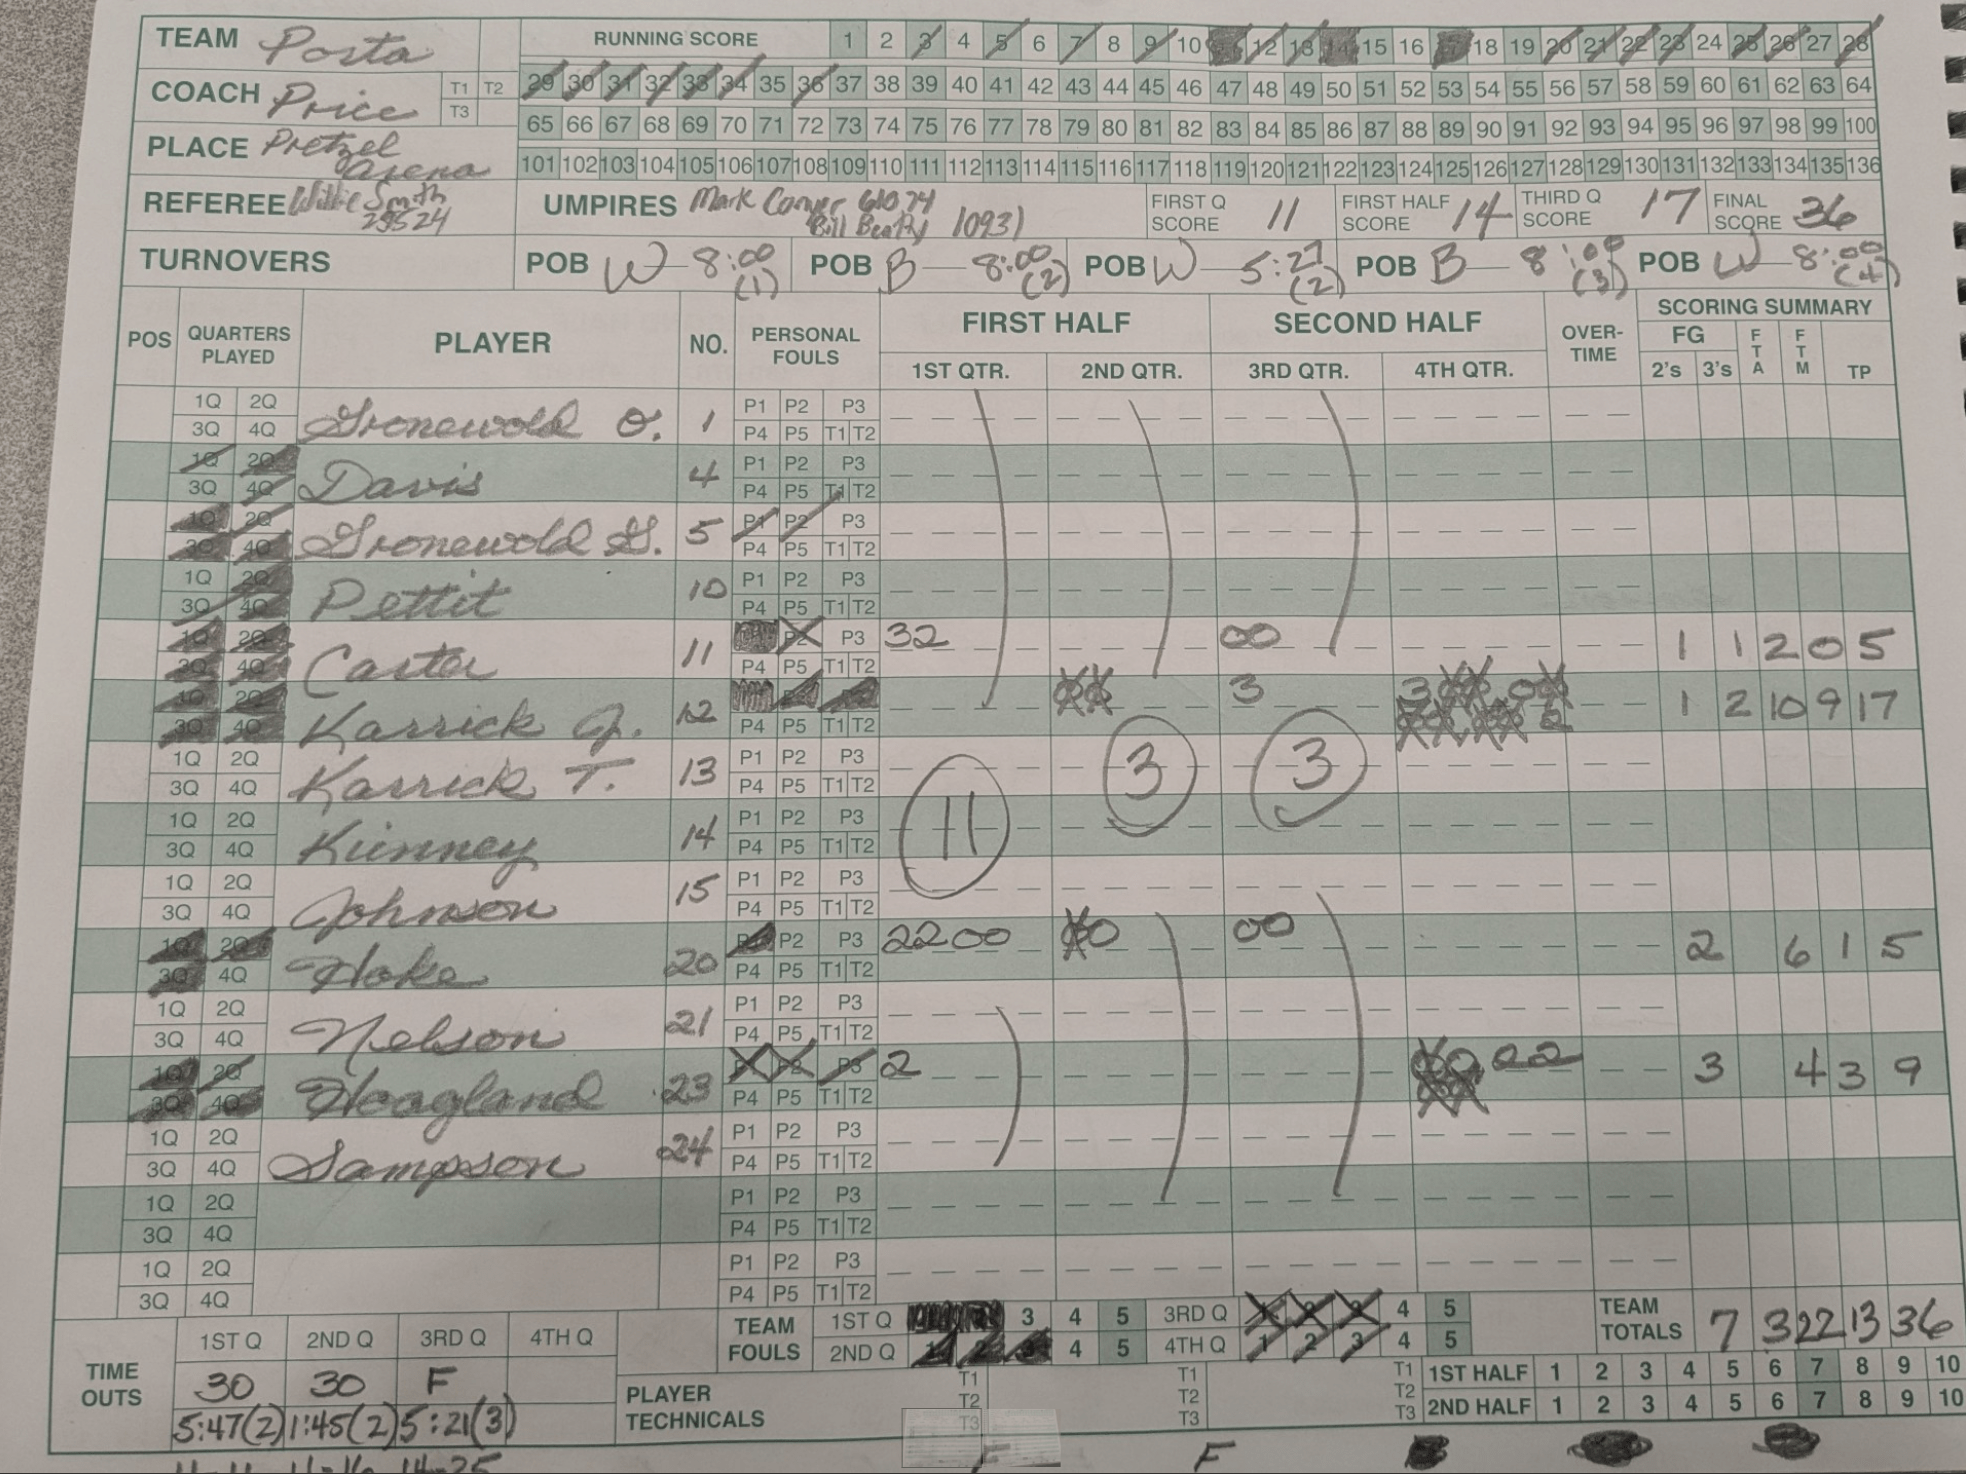 TEAM Porta RUNNING SCORE 1 2 3 4 5 6 7 8 9 10 12 13 14 15 16 17 18 19 20 21 22 23 24 25 26 27 28
COACH Price T1 T2 T3 29 30 31 32 33 34 35 36 37 38 39 40 41 42 43 44 45 46 47 48 49 50 51 52 53 54 55 56 57 58 59 60 61 62 63 64
65 66 67 68 69 70 71 72 73 74 75 76 77 78 79 80 81 82 83 84 85 86 87 88 89 90 91 92 93 94 95 96 97 98 99 100
PLACE Pretzel Arena 101 102 103 104 105 106 107 108 109 110 111 112 113 114 115 116 117 118 119 120 121 122 123 124 125 126 127 128 129 130 131 132 133 134 135 136
REFEREE Willie Smith 29524 UMPIRES Mark Conver 61074 Bill Beatty 10931 FIRST Q SCORE 11 FIRST HALF SCORE 14 THIRD Q SCORE 17 FINAL SCORE 36
TURNOVERS POB W 8:00 (1) POB B 8:00 (2) POB W 5:27 (2) POB B 8:00 (3) POB W 8:00 (4)
POS QUARTERS PLAYED PLAYER NO. PERSONAL FOULS FIRST HALF SECOND HALF OVER-TIME SCORING SUMMARY
1ST QTR. 2ND QTR. 3RD QTR. 4TH QTR. FG 2's 3's FTA FTM TP
1Q 2Q P1 P2 P3
3Q 4Q Gronewold O. 1 P4 P5 T1 T2
1Q 2Q P1 P2 P3
3Q 4Q Davis 4 P4 P5 T1 T2
1Q 2Q P1 P2 P3
3Q 4Q Gronewold G. 5 P4 P5 T1 T2
1Q 2Q P1 P2 P3
3Q 4Q Pettit 10 P4 P5 T1 T2
1Q 2Q P2 P3 32 00 1 1 2 0 5
3Q 4Q Carter 11 P4 P5 T1 T2
1Q 2Q 3 3 1 2 10 9 17
3Q 4Q Karrick J. 12 P4 P5 T1 T2 2
1Q 2Q P1 P2 P3
3Q 4Q Karrick T. 13 P4 P5 T1 T2 11 3 3
1Q 2Q P1 P2 P3
3Q 4Q Kinney 14 P4 P5 T1 T2
1Q 2Q P1 P2 P3
3Q 4Q Johnson 15 P4 P5 T1 T2
1Q 2Q P2 P3 2200 0 00 2 6 1 5
3Q 4Q Hoke 20 P4 P5 T1 T2
1Q 2Q P1 P2 P3
3Q 4Q Nelson 21 P4 P5 T1 T2
1Q 2Q P3 2 22 3 4 3 9
3Q 4Q Hoagland 23 P4 P5 T1 T2
1Q 2Q P1 P2 P3
3Q 4Q Sampson 24 P4 P5 T1 T2
1Q 2Q P1 P2 P3
3Q 4Q P4 P5 T1 T2
1Q 2Q P1 P2 P3
3Q 4Q P4 P5 T1 T2
TIME OUTS 1ST Q 2ND Q 3RD Q 4TH Q TEAM FOULS 1ST Q 3 4 5 3RD Q 1 2 3 4 5 TEAM TOTALS 7 3 22 13 36
2ND Q 1 2 3 4 5 4TH Q 1 2 3 4 5
30 30 F PLAYER TECHNICALS T1 T2 T3 T1 T2 T3 T1 T2 T3 1ST HALF 1 2 3 4 5 6 7 8 9 10
5:47(2) 1:45(2) 5:21(3) 2ND HALF 1 2 3 4 5 6 7 8 9 10
11-11 11-16 14-25 F F